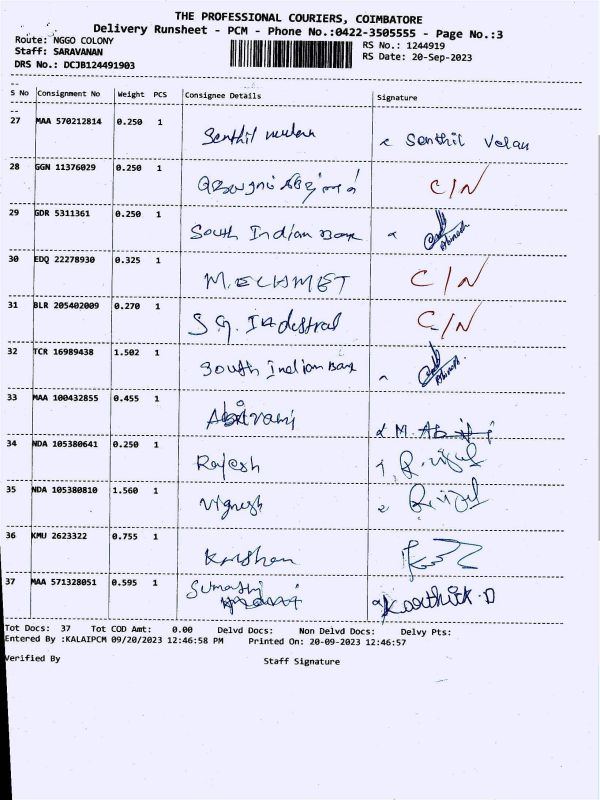 THE PROFESSIONAL COURIERS, COIMBATORE
Delivery Runsheet - PCM - Phone No.:0422-3505555 - Page No.:3
Route: NGGO COLONY
RS No.: 1244919
Staff: SARAVANAN
RS Date: 20-Sep-2023
DRS No.: DCJB124491903
S No Consignment No Weight PCS Consignee Details Signature
27 MAA 570212814 0.250 1 Senthil Senthil Velan
28 GGN 11376029 0.250 1 C/N
29 GDR 5311361 0.250 1 South Indian Bank
30 EDQ 22278930 0.325 1 M.ECHMET C/N
31 BLR 205402009 0.270 1 S G. Industral C/N
32 TCR 16989438 1.502 1 South Indian Bank
33 MAA 100432855 0.455 1 Abirami
34 NDA 105380641 0.250 1 Rajesh
35 NDA 105380810 1.560 1 Vignesh
36 KMU 2623322 0.755 1 Krishna
37 MAA 571328051 0.595 1 Karthick.D
Tot Docs: 37 Tot COD Amt: 0.00 Delvd Docs: Non Delvd Docs: Delvy Pts:
Entered By :KALAIPCM 09/20/2023 12:46:58 PM Printed On: 20-09-2023 12:46:57
Verified By Staff Signature